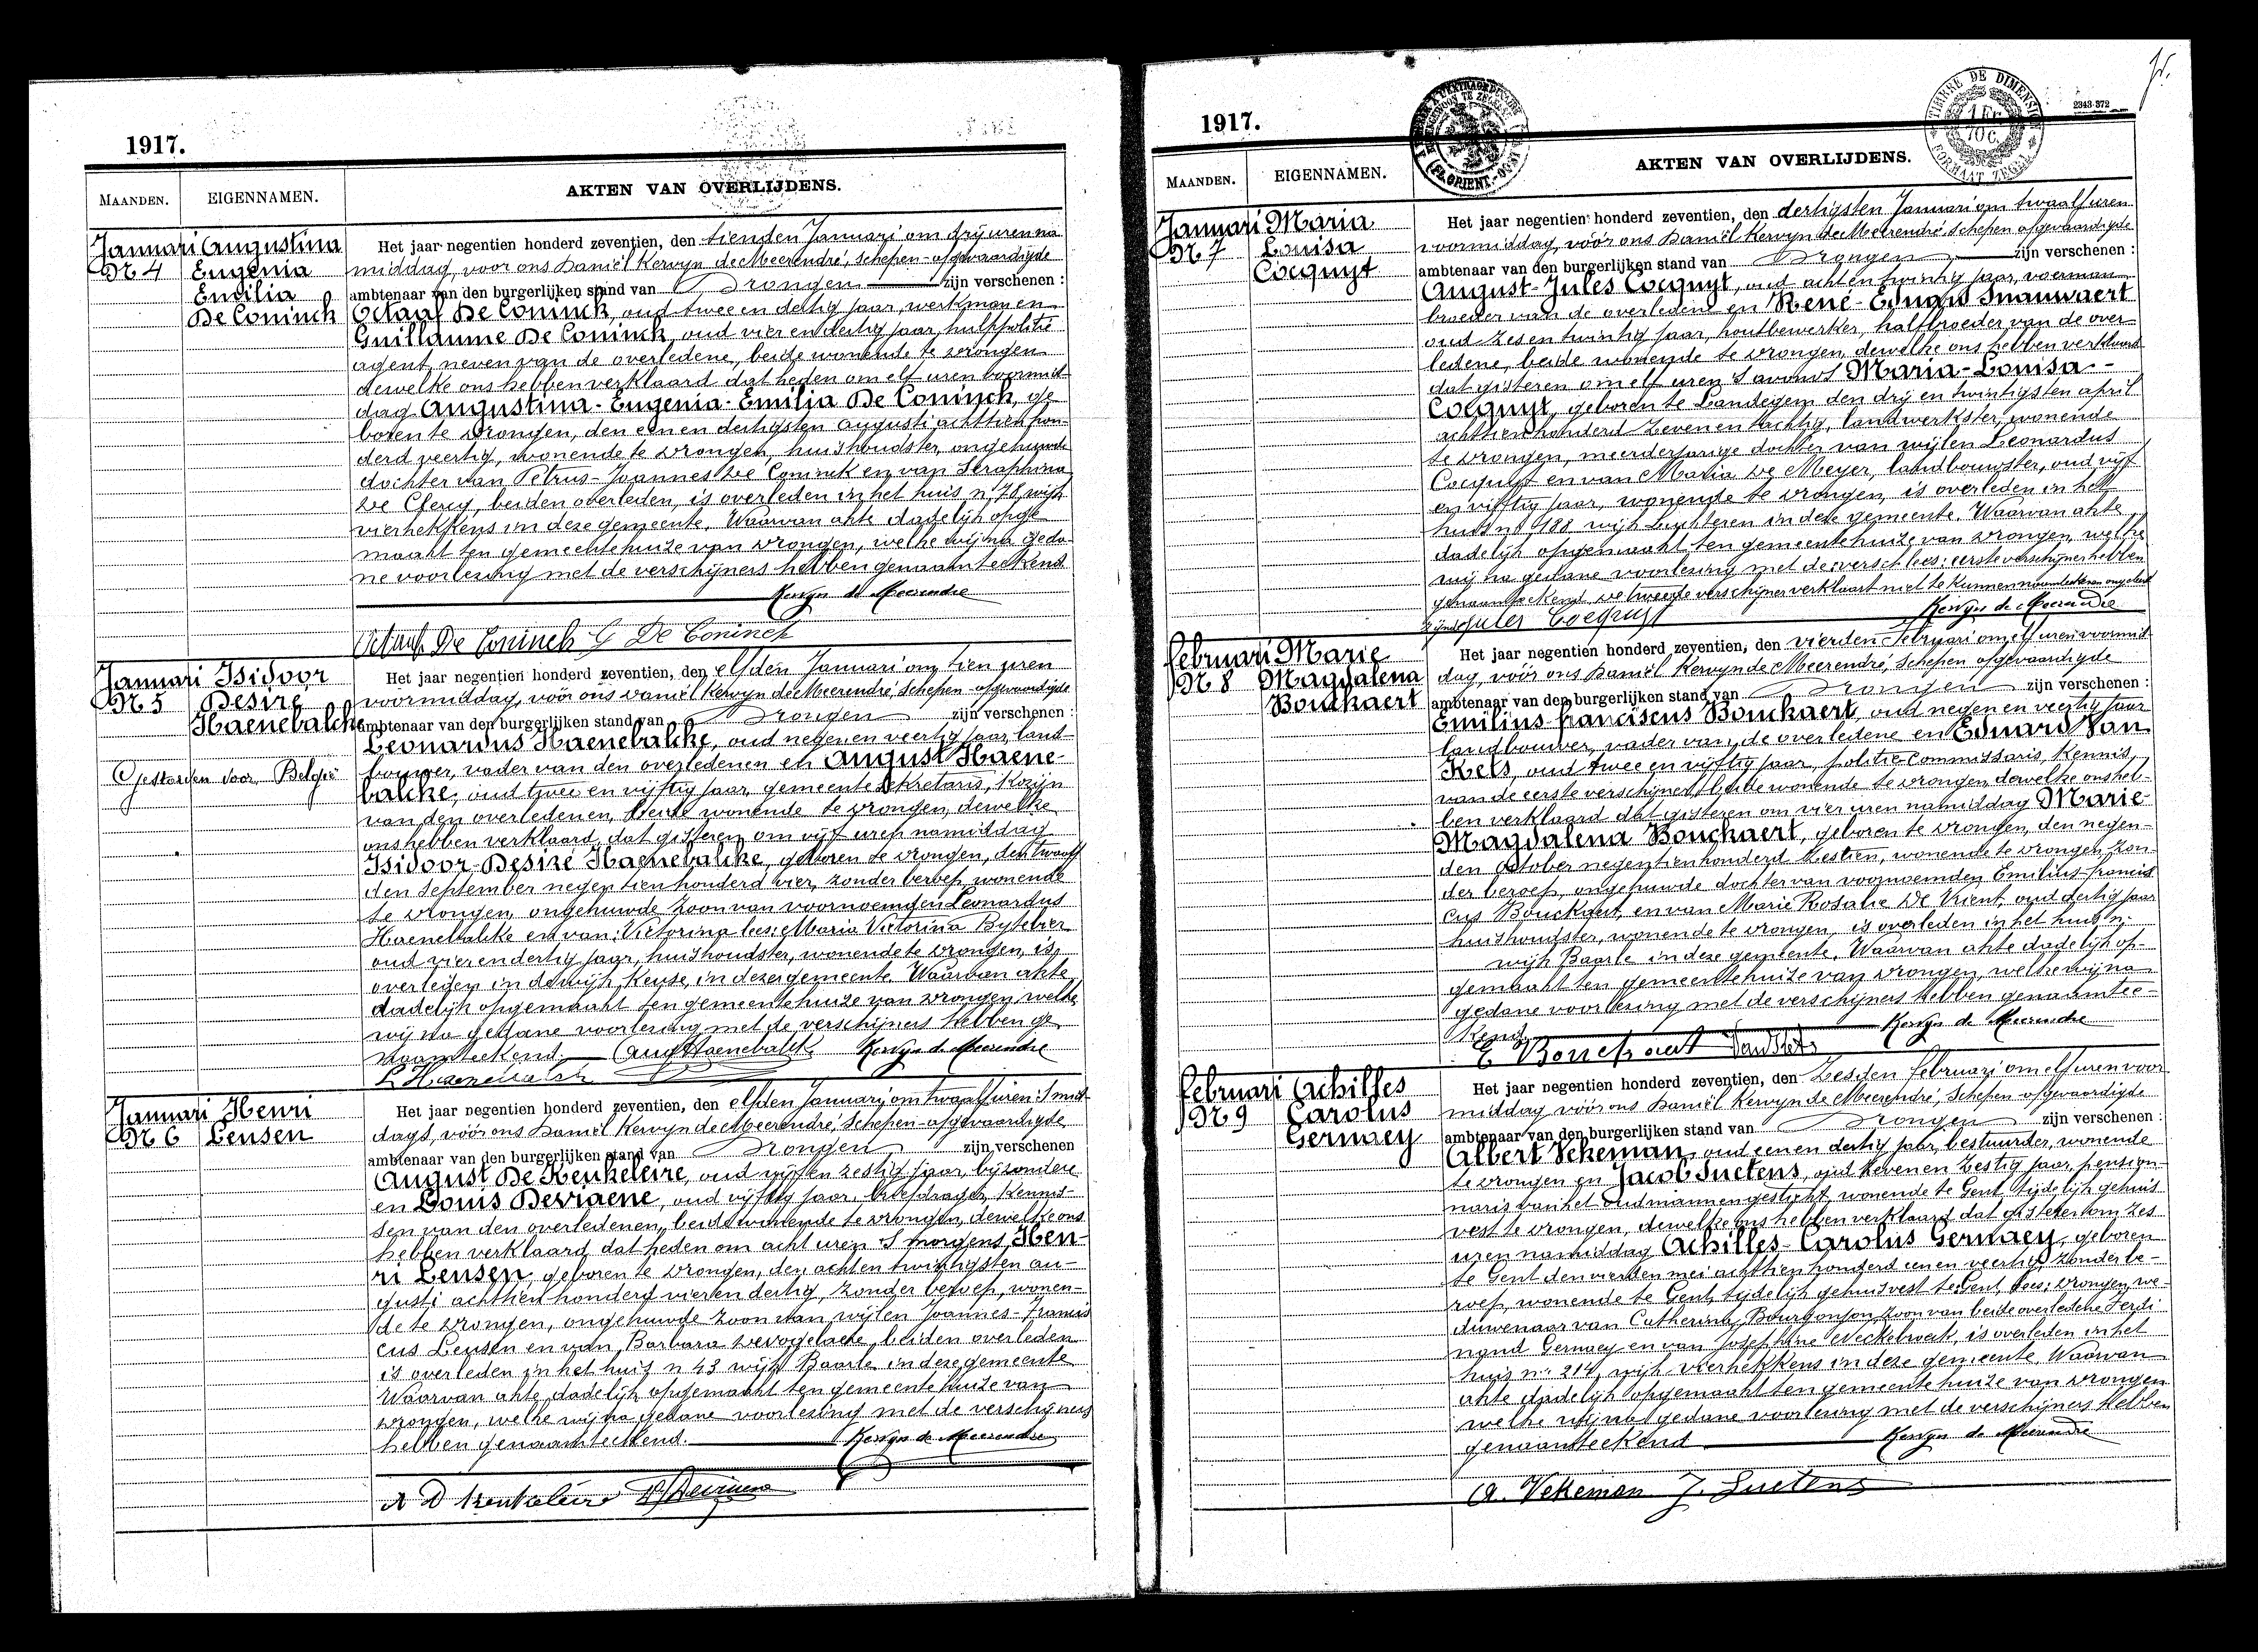 1917.
MAANDEN.
EIGENNAMEN.
AKTEN VAN OVERLIJDENS.
Januari Augustina
Nr 4 Eugenia
Emilia
De Coninck
Het jaar negentien honderd zeventien, den tienden Januari om drij uren na
middag, voor ons Daniël Kervyn de Meerendré, Schepen-afgevaardigde
ambtenaar van den burgerlijken stand van Drongen zijn verschenen :
Octaaf De Coninck, oud twee en dertig jaar, werkman en
Guillaume De Coninck, oud vier en dertig jaar, hulppolitie
agent, neven van de overledene, beide wonende te Drongen
dewelke ons hebben verklaard dat heden om elf uren voormid-
dag Augustina-Eugenia-Emilia De Coninck, ge
boren te Drongen, den een en dertigsten Augusti achttien hon-
derd veertig, wonende te Drongen, huishoudster, ongehuwde
dochter van Petrus-Joannes De Coninck en van Seraphina
De Clercq, beiden overleden, is overleden in het huis n. 78 wijk
vierhekkens in deze gemeente. Waarvan akte dadelijk opge
maakt ten gemeentehuize van Drongen, welke wij na geda-
ne voorlezing met de verschijners hebben genaamteekend.
Kervyn de Meerendre
Octaaf De Coninck G De Coninck
Januari Isidoor
Nr 5 Desiré
Haenebalcke
Gestorven voor België
Het jaar negentien honderd zeventien, den elfden Januari om tien uren
voormiddag, vóór ons Daniël Kervyn de Meerendré, Schepen-afgevaardigde
ambtenaar van den burgerlijken stand van Drongen zijn verschenen :
Leonardus Haenebalcke, oud negen en veertig jaar, land-
bouwer, vader van den overledenen en August Haene-
balcke, oud twee en vijftig jaar, gemeente sekretaris, kozijn
van den overledenen, beide wonende te Drongen, dewelke
ons hebben verklaard, dat gisteren om vijf uren namiddag
Isidoor-Desiré Haenebalcke, geboren te Drongen, den twaalf
den September negentienhonderd vier, zonder beroep, wonende
te Drongen, ongehuwde zoon van voornoemden Leonardus
Haenebalcke en van: Victorina lees: Maria Victorina Bytebier
oud vier en dertig jaar, huishoudster, wonende te Drongen, is
overleden in de wijk Keuze, in deze gemeente. Waarvan akte
dadelijk opgemaakt ten gemeentehuize van Drongen welke
wij na gedane voorlezing met de verschijners hebben ge
naamteekend. Aug Haenebalck Kervyn de Meerendre
L Haenebalck
Januari Henri
Nr 6 Leusen
Het jaar negentien honderd zeventien, den elfden Januari om twaalf uren 's mid-
dags, vóór ons Daniël Kervyn de Meerendré, Schepen-afgevaardigde
ambtenaar van den burgerlijken stand van Drongen zijn verschenen
August De Keukeleire, oud vijf en zestig jaar, bijzondere
en Louis Devriaene, oud vijftig jaar, briefdrager, kennis-
sen van den overledenen, beide wonende te Drongen, dewelke ons
hebben verklaard dat heden om acht uren 's morgens, Hen-
ri Leusen, geboren te Drongen, den acht en twintigsten au-
gusti achttien honderd vier en dertig, zonder beroep, wonen-
de te Drongen, ongehuwde zoon van wijlen Joannes-Francis
cus Leusen en van Barbara Devogelaere, beiden overleden
is overleden in het huis n 43 wijk Baarle in deze gemeente
Waarvan akte dadelijk opgemaakt ten gemeentehuize van
Drongen, welke wij na gedane voorlezing met de verschijners
hebben genaamteekend. Kervyn de Meerendre
A D Keukeleire L Devriaene
1917.
2343-372
TIMBRE DE DIMENSION
1 FR.
10 C.
FORMAAT ZEGEL
MAANDEN.
EIGENNAMEN.
AKTEN VAN OVERLIJDENS.
Januari Maria
Nr 7 Louisa
Cocquyt
Het jaar negentien honderd zeventien, den dertigsten Januari om twaalf uren
voormiddag, vóór ons Daniël Kervyn de Meerendré, Schepen afgevaardigde
ambtenaar van den burgerlijken stand van Drongen zijn verschenen :
August-Jules Cocquyt, oud acht en twintig jaar, voerman
broeder van de overledene en René-Eduard Snauwaert
oud zes en twintig jaar, houtbewerker, halfbroeder van de over
ledene, beide wonende te Drongen, dewelke ons hebben verklaard
dat gisteren om elf uren 's avonds Maria-Louisa-
Cocquyt, geboren te Landegem den drij en twintigsten april
achttienhonderd zeven en tachtig, landwerkster, wonende
te Drongen, meerderjarige dochter van wijlen Leonardus
Cocquyt en van Maria De Meyer, landbouwster, oud vijf
en vijftig jaar, wonende te Drongen, is overleden in het
huis n° 188 wijk Luchteren in deze gemeente. Waarvan akte
dadelijk opgemaakt ten gemeentehuize van Drongen, welke
wij na gedane voorlezing met de versch lees: eerste verschijner hebben
genaamteekend. De tweede verschijner verklaart niet te kunnen naamteekenen ongeleerd
zijnde Jules Cocquyt Kervyn de Meerendre
Februari Marie
Nr 8 Magdalena
Bouckaert
Het jaar negentien honderd zeventien, den vierden Februari om elf uren voormid-
dag, vóór ons Daniël Kervyn de Meerendré, Schepen afgevaardigde
ambtenaar van den burgerlijken stand van Drongen zijn verschenen :
Emilius Franciscus Bouckaert, oud negen en veertig jaar
landbouwer, vader van de overledene en Eduard Van
Kets, oud twee en vijftig jaar, politie commissaris, kennis,
van de eerste verschijner, beide wonende te Drongen, dewelke ons heb-
ben verklaard dat gisteren om vier uren namiddag Marie-
Magdalena Bouckaert, geboren te Drongen, den negen-
den October negentienhonderd zestien, wonende te Drongen, zon-
der beroep, ongehuwde dochter van voornoemden Emilius-Francis
cus Bouckaert, en van Marie Rosalie De Vrient, oud dertig jaar
huishoudster, wonende te Drongen, is overleden in het huis n.
wijk Baarle in deze gemeente. Waarvan akte dadelijk op-
gemaakt ten gemeentehuize van Drongen, welke wij na
gedane voorlezing met de verschijners hebben genaamtee-
kend. Kervyn de Meerendre
E Bouckaert VandKets
Februari Achilles
Nr 9 Carolus
Germaey
Het jaar negentien honderd zeventien, den zesden Februari om elf uren voor
middag vóór ons Daniël Kervyn de Meerendré, Schepen afgevaardigde
ambtenaar van den burgerlijken stand van Drongen zijn verschenen :
Albert Vekeman, oud een en dertig jaar, bestuurder, wonende
te Drongen en Jacob Suetens, oud zeven en zestig jaar, pension-
naris van het oudmannengesticht, wonende te Gent, tijdelijk gehuis
vest te Drongen, dewelke ons hebben verklaard dat gisteren om zes
uren namiddag Achilles-Carolus Germaey, geboren
te Gent den vierden mei achttien honderd een en veertig, zonder be-
roep, wonende te Gent, tijdelijk gehuisvest te: Gent, lees: Drongen, we-
duwenaar van Catherina Bourgonjon, zoon van beide overledene Ferdi
nand Germaey en van Josephine Neckebroeck, is overleden in het
huis n° 214, wijk Vierhekkens in deze gemeente. Waarvan
akte dadelijk opgemaakt ten gemeentehuize van Drongen
welke wij na gedane voorlezing met de verschijners hebben
genaamteekend Kervyn de Meerendre
A. Vekeman J. Suetens